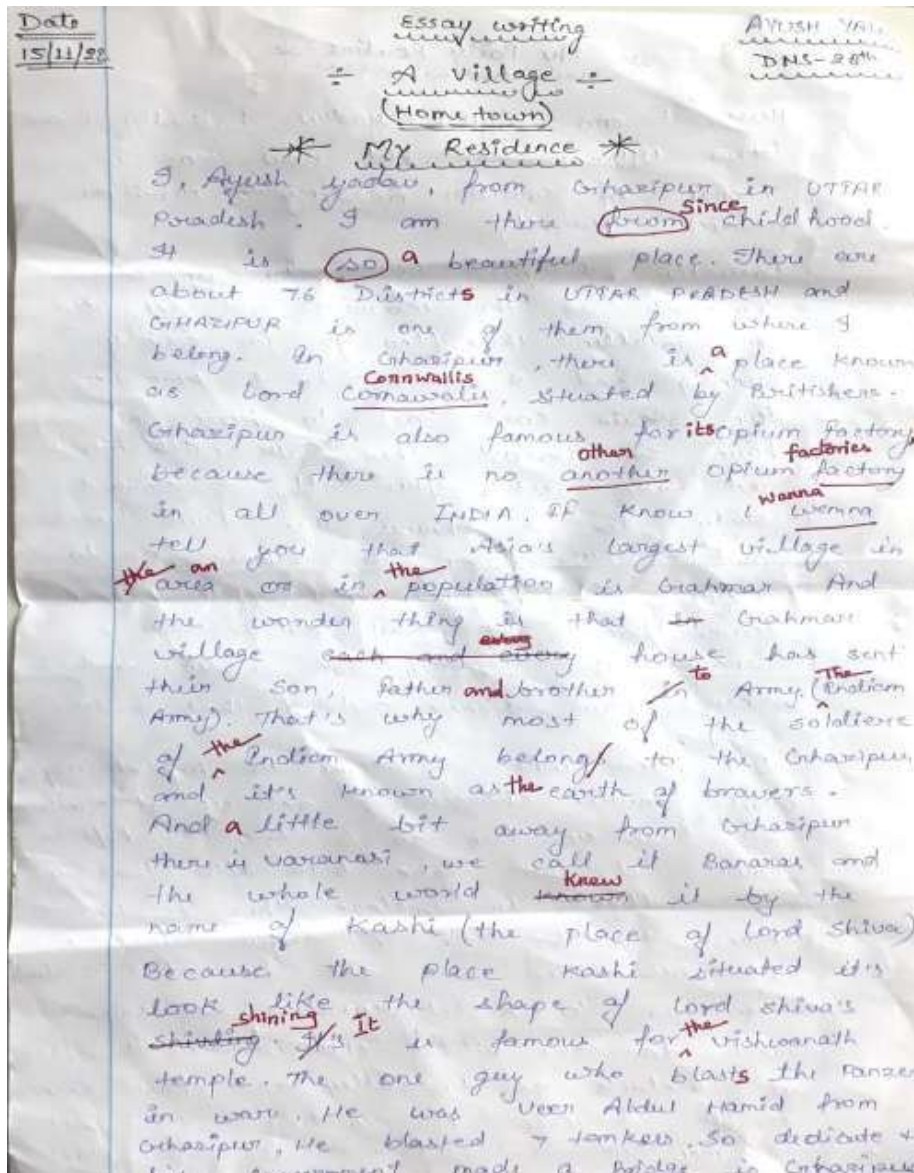 Date
15/11/22
Essay writing
AYUSH
DNS-28th
÷ A village ÷
(Home town)
My Residence
I, Ayush yadav, from Ghazipur in UTTAR
Since
Pradesh. I am there from child hood.
It is so a beautiful place. There are
about 76 Districts in UTTAR PRADESH and
GHAZIPUR is one of them from where I
belong. In Ghazipur, there is a place known
Cornwallis
as Lord Cornawalis, situated by Britishers.
Ghazipur is also famous for its opium factory
other factories
because there is no another opium factory
wanna
in all over INDIA. If know, I wemna
tell you that Asia's largest village in
the an area or in the population is Grahmar And
the wonder thing is that in Grahmar
village each and every house has sent
to The
their Son, father and brother in Army (Indian
Army). That's why most of the soldiers
of the Indian Army belongs to the Ghazipur
and it's known as the earth of bravers.
And a little bit away from Ghazipur
there is varanasi, we call it Banaras and
knew
the whole world known it by the
name of Kashi (the place of lord shiva)
Because the place kashi situated it's
look like the shape of lord shiva's
shining It the
shivling. It's is famous for vishwanath
temple. The one guy who blasts the Panzer
in war. He was Veer Abdul Hamid from
Ghazipur, He blasted 7 tankers. So dedicate
government made a Bridge in Ghazipur